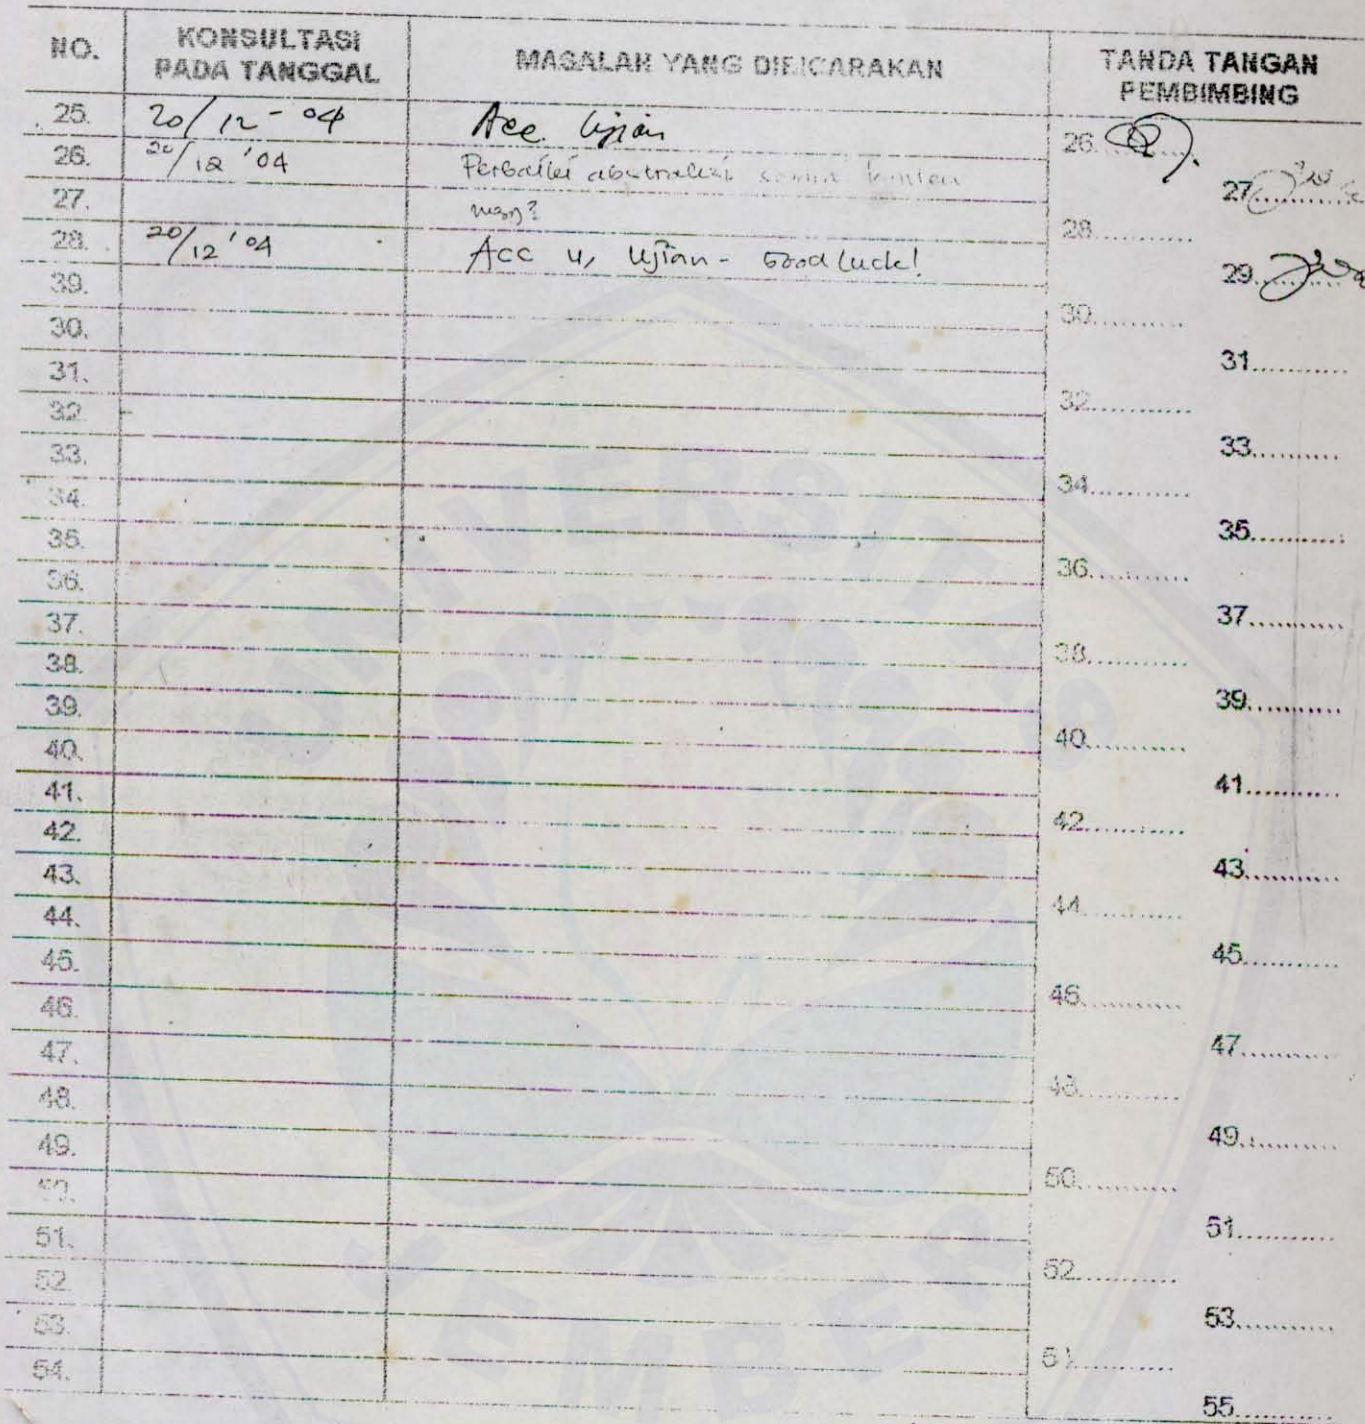 NO. KONSULTASI PADA TANGGAL MASALAH YANG DIBICARAKAN TANDA TANGAN PEMBIMBING
25. 20/12-04 Acc. Ujian 26.
26. 20/12 '04 Perbaiki 27.
27.
28. 20/12 '04 Acc u/ Ujian - Good luck! 28.
39. 29.
30. 30.
31. 31
32. 32
33. 33
34. 34
35. 35
36. 36
37. 37
38. 38
39. 39
40. 40
41. 41
42. 42
43. 43
44. 44
45. 45
46. 46
47. 47
48. 48
49. 49
50. 50
51. 51
52. 52
53. 53
54.
55
UNIVERSITAS
JEMBER